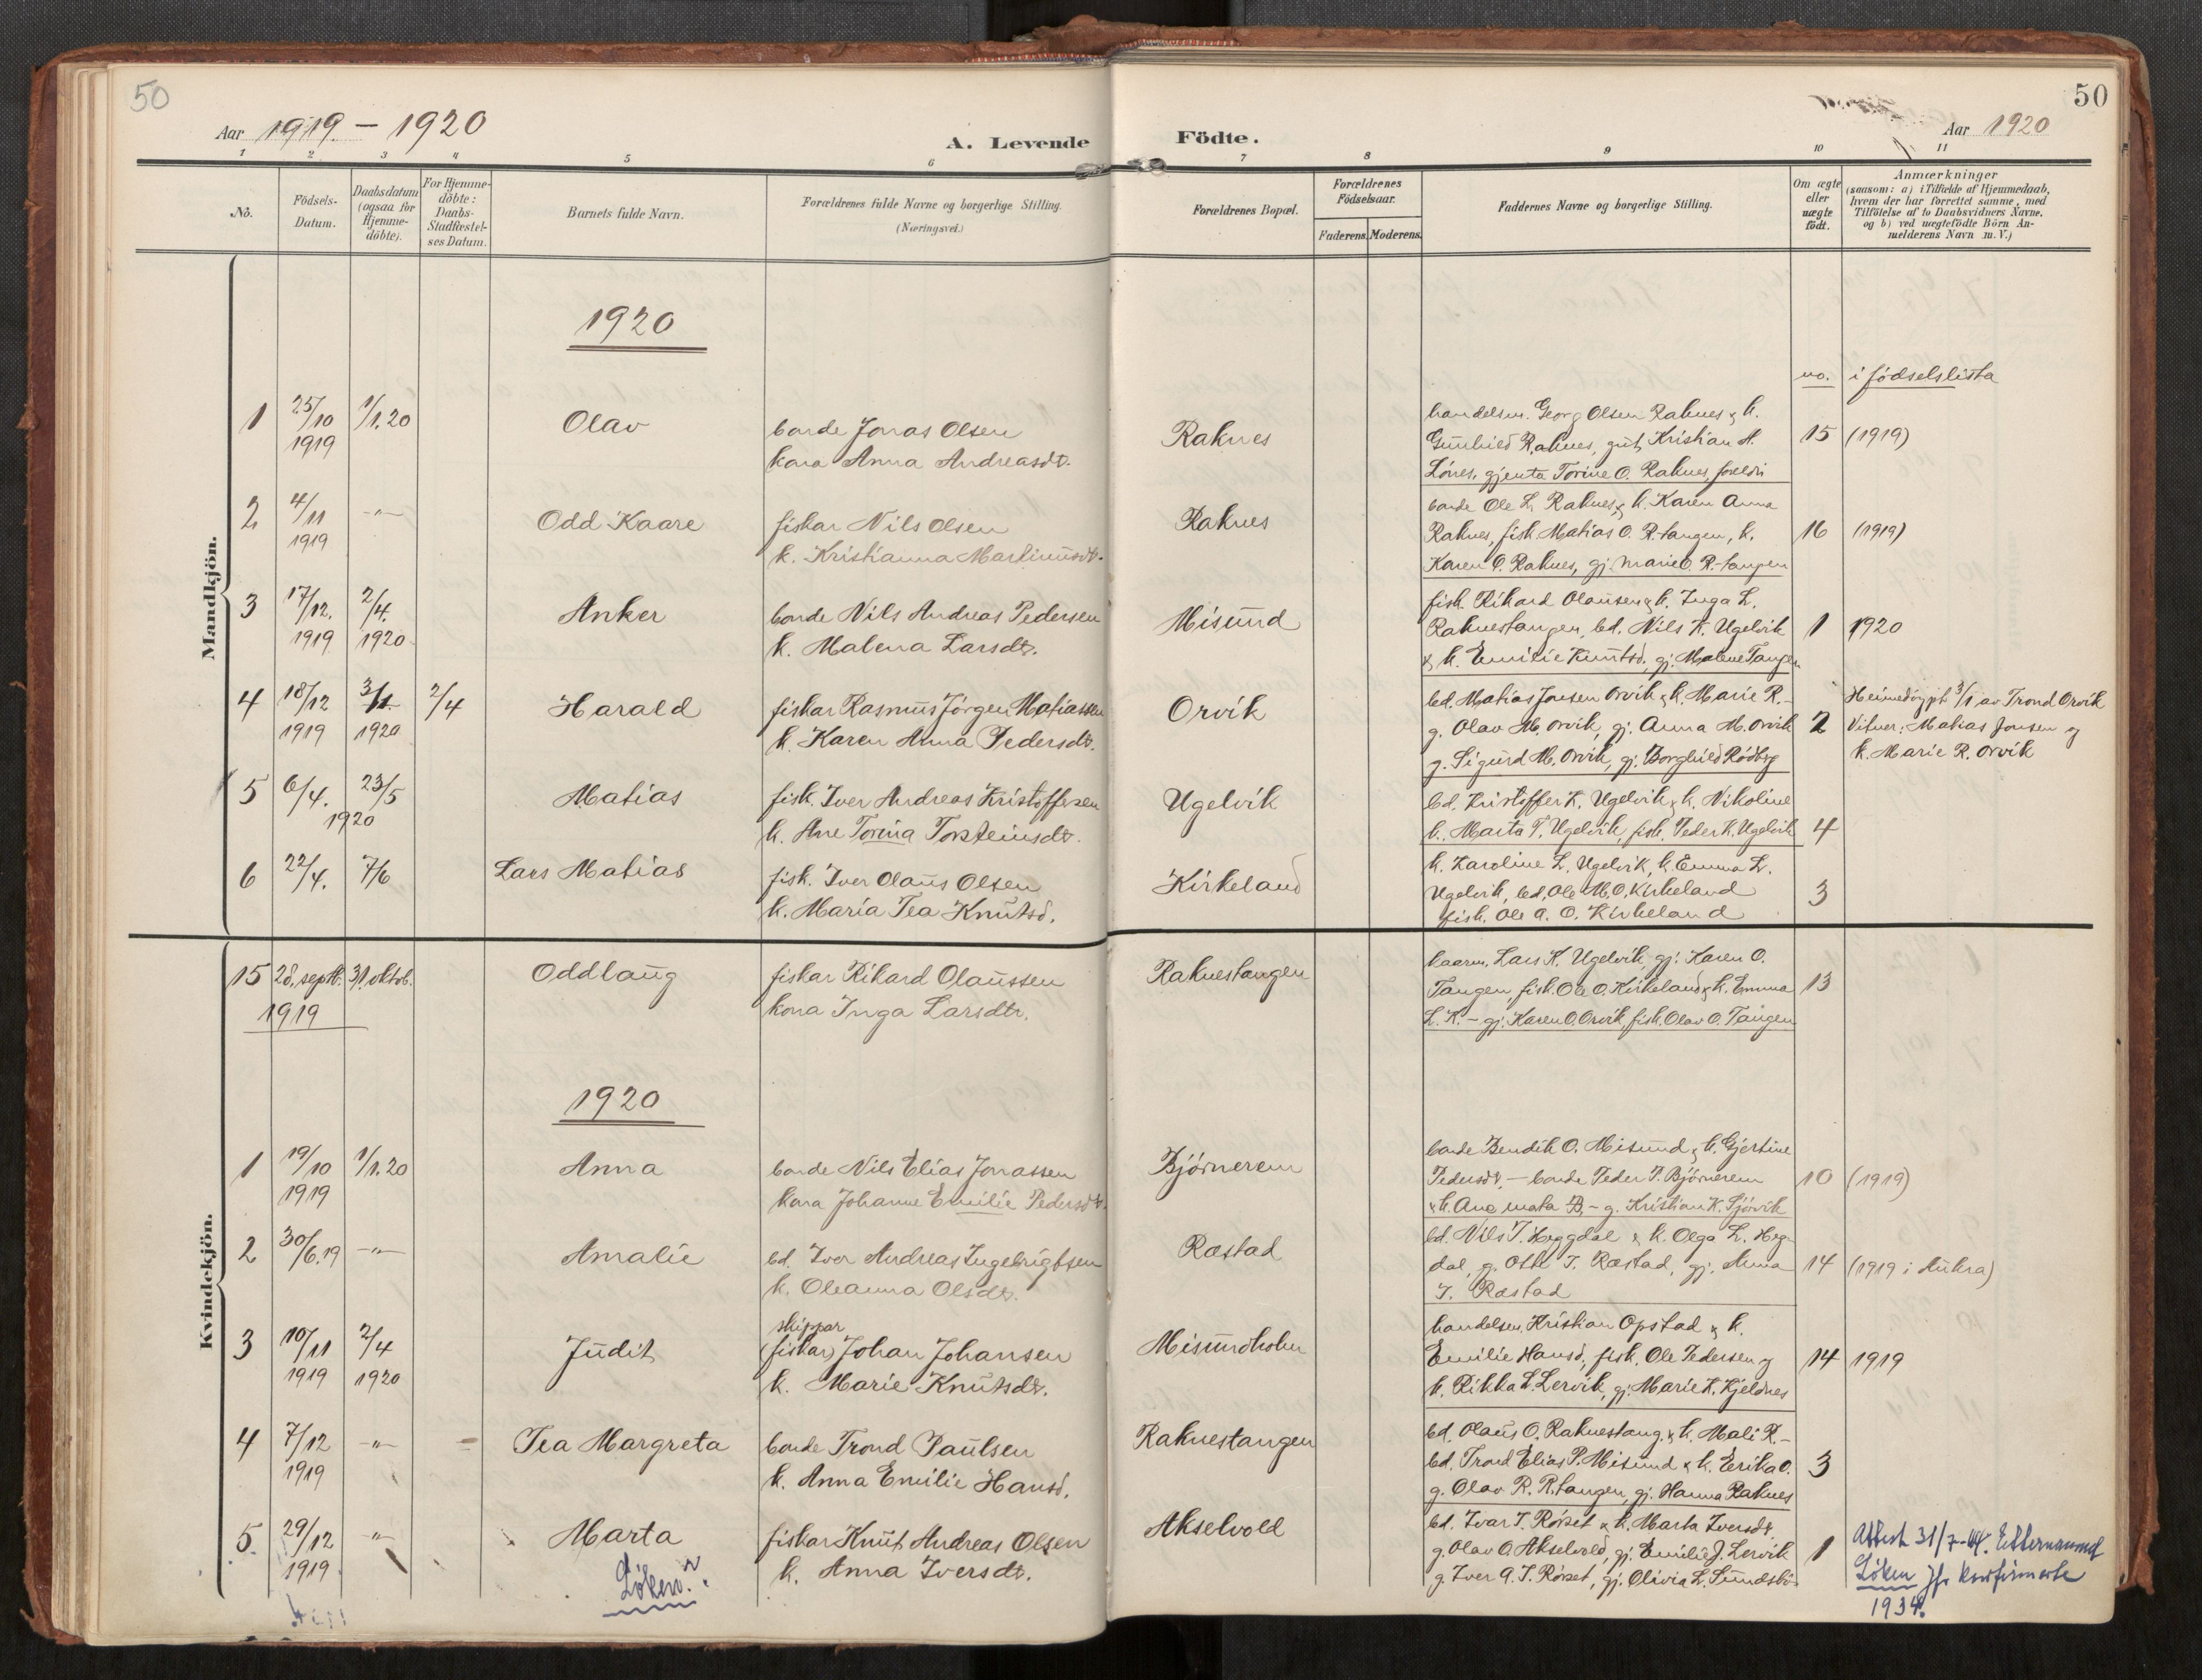 50
Aar 1919 – 1920
A. Levende Födte.
Aar 1920
50
1 2 3 4 5 6 7 8 9 10 11
No.
Födsels-Datum.
Daabsdatum (ogsaa for Hjemme-döbte).
For Hjemme-döbte: Daabs-Stadfæstel-ses Datum.
Barnets fulde Navn.
Forældrenes fulde Navne og borgerlige Stilling. (Næringsvei.)
Forældrenes Bopæl.
Forældrenes Födselsaar.
Faderens. Moderens.
Faddernes Navne og borgerlige Stilling.
Om ægte eller uægte födt.
Anmærkninger
(saasom: a) i Tilfælde af Hjemmedaab,
hvem der har forrettet samme, med
Tilföielse af to Daabsvidners Navne,
og b) ved uægtefödte Börn An-
melderens Navn m. V.)
Mandkjön.
1920
no. i fødselslista
1 25/10 1919 1/1. 20 Olav
bonde Jonas Olsen
kona Anna Andreasdt.
Raknes
handelsm. Georg Olsen Raknes & k.
Gunhild Raknes, gut Kristian A.
Lønes, gjenta Torine O. Raknes, foreldri
15 (1919)
2 4/11 1919 -"- Odd Kaare
fiskar Nils Olsen
k. Kristianna Martinusdt.
Raknes
bonde Ole L. Raknes, & k. Karen Anna
Raknes, fisk. Matias O. R.tangen, k.
Karen O. Raknes, gj. Marie O. R-tangen
16 (1919)
3 17/12. 1919 2/4. 1920 Anker
bonde Nils Andreas Pedersen
k. Malena Larsdtr.
Misund
fisk. Rikard Olaussen & k. Inga L.
Raknestangen, bd. Nils K. Ugelvik
& k. Emilie Knutsd., gj. Malene Tangen
1 1920
4 18/12 1919 3/1 1920 2/4 Harald
fiskar Rasmus Jørgen Matiassen
k. Karen Anna Pedersdt.
Orvik
bd. Matias Jonsen Orvik & k. Marie R.-
g. Olav M. Orvik, gj. Anna M. Orvik
g. Sigurd M. Orvik, gj. Borghild Rødberg
2
Heimedøypt 3/1 av Trond Orvik
Vitner: Matias Jonsen og
k. Marie R. Orvik
5 6/4. 23/5 1920 Matias
fisk. Iver Andreas Kristoffersen
k. Ane Torina Torsteinsdt.
Ugelvik
bd. Kristoffer K. Ugelvik & k. Nikoline
k. Marta T. Ugelvik, fisk. Peder K. Ugelvik
4
6 22/4. 7/6 Lars Matias
fisk. Iver Olaus Olsen
k. Maria Tea Knutsd.
Kirkeland
k. Karoline L. Ugelvik, k. Emma L.
Ugelvik, bd. Ole M. O. Kirkeland
fisk. Ole A. O. Kirkeland
3
Kvindekjön.
15 28. septb. 31. oktob. 1919 Oddlaug
fiskar Rikard Olaussen
kona Inga Larsdtr.
Raknestangen
kaarm. Lars K. Ugelvik, gj. Karen O.
Tangen, fisk. Ole O. Kirkeland & k. Emma
L. K. – gj. Karen O. Orvik, fisk. Olav O. Tangen
13
1920
1 19/10 1919 1/1. 20 Anna
bonde Nils Elias Jonassen
kona Johanne Emilie Pedersdt.
Bjørnerem
bonde Bendik O. Misund & k. Gjertine
Pedersdt. – bonde Peder P. Bjørnerem
& k. Ane Mata B. – g. Kristian K.
10 (1919)
2 30/6. 19 -"- Amalie
bd. Iver Andreas Ingebrigtsen
k. Oleanna Olsdt.
Røstad
bd. Nils T. Heggdal & k. Olga L. Heg-
dal, g. I. Røstad, gj. Anna
I. Røstad
14 (1919 i Aukra)
3 10/11 1919 2/4 1920 Judit
skippar
(fiskar) Johan Johansen
k. Marie Knutsdt.
Misundholm
handelsm. Kristian Opstad & k.
Emilie Hansd., fisk. Ole Pedersen og
k. Rikka L. Lervik, gj. Marie K. Kjeldnes
14 1919
4 7/12 1919 -"- Tea Margreta
bonde Trond Paulsen
k. Anna Emilie Hansd.
Raknestangen
bd. Olaus O. Raknestang. & k. Mali R.-
bd. Trond Elias P. Misund & k. Erika O.
g. Olav R. R.tangen, gj. Hanna Raknes
3
5. 29/12 1919 -"- Marta
Løken
fiskar Knut Andreas Olsen
k. Anna Iversdt.
Akselvold
bd. Ivar I. Røiset & k. Marta Iversdt.
g. Olav O. Akselvold, gj. Emilie J. Lervik
g. Iver A. I. Røiset, gj. Olivia L. Sundsbø
1
Attest 31/7-44. Etternamnet
Løken jfr konfirmerte
1934.